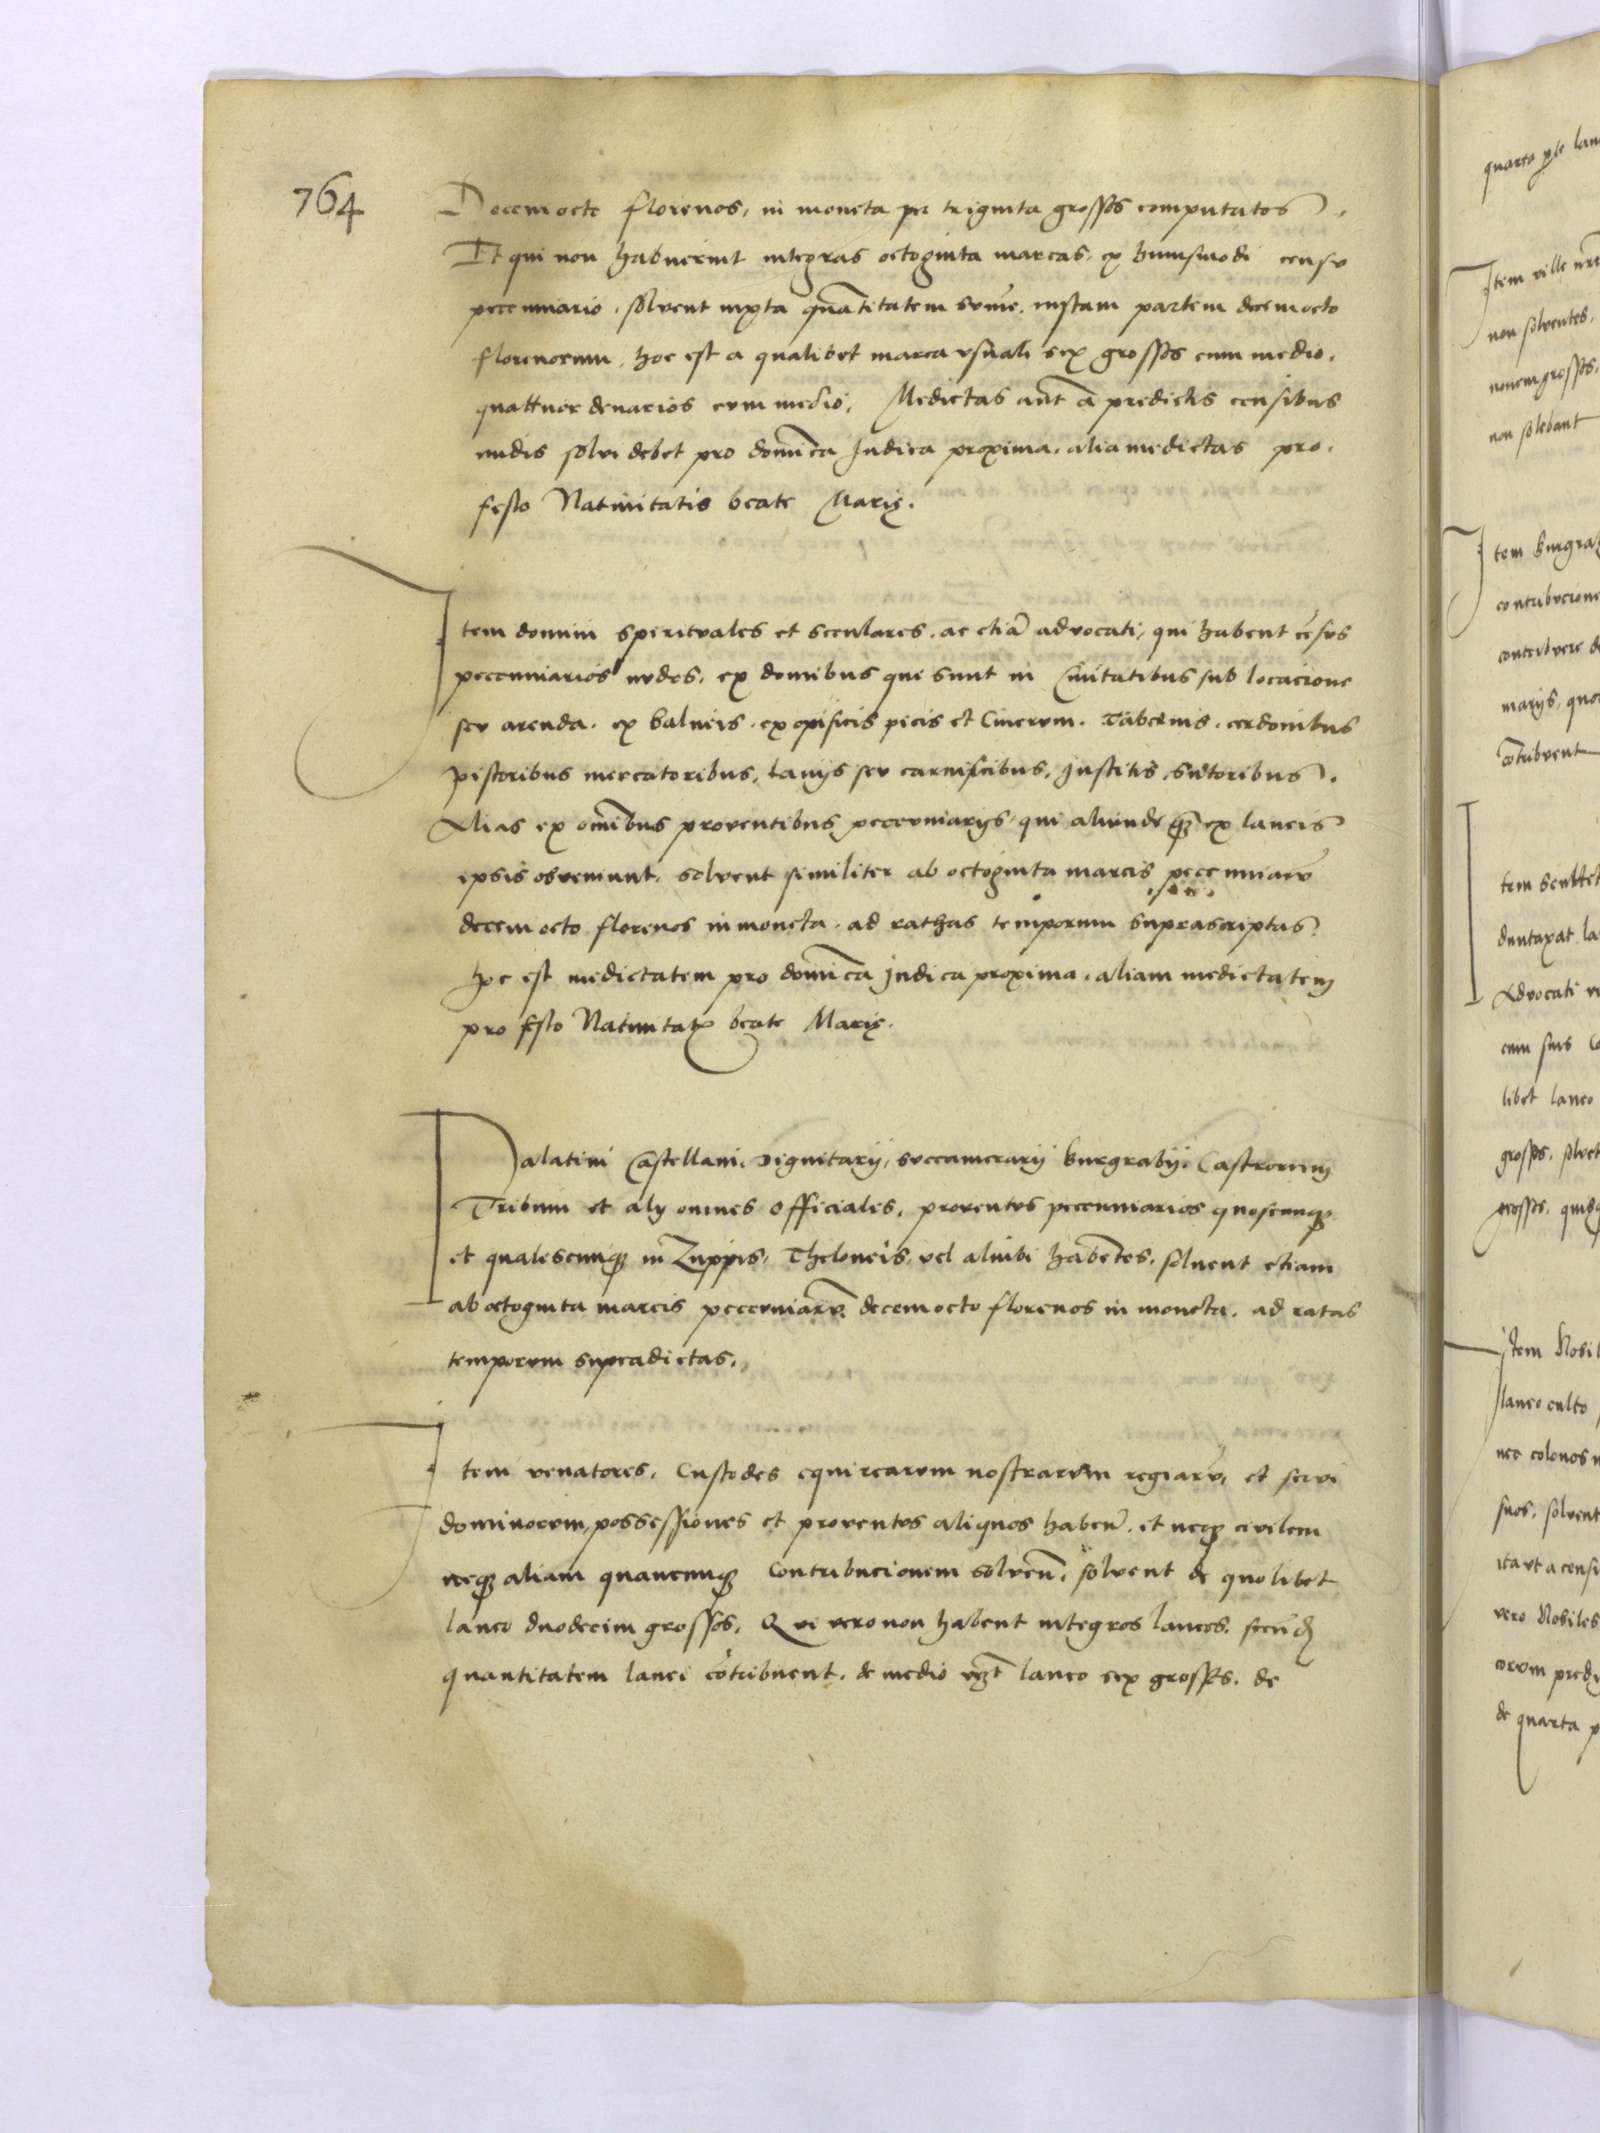 764
Decemocto florenos, in moneta per triginta grossos computatos.
Et qui non habuerint integras octoginta marcas, ex huiusmodi censu
pecuniario, solvent iuxta quantitatem sume, iustam partem decemocto
florenorum, hoc est a qualibet marca usuali sex grossos cum medio,
quattuor denarios cum medio, Medietas aut̃ a predictis censibus
nudis solvi debet pro domĩca Judica proxima, alia medietas pro,
festo Nativitatis beate Marię.
Item domini spirituales et seculares, ac etiã advocati, qui habent cẽsus
pecuniarios nudos, ex domibus que sunt in Civitatibus sub locacione
seu arenda, ex balneis, ex opificis picis et Cinerum, Tabernis, cerdonibus
pistoribus mercatoribus, lanijs seu carnificibus, Institis, Sutoribus.
Alias ex omĩbus proventibus pecuniarijs, qui aliunde q̃ ex laneis
ipsis obveniunt, solvent similiter ab octoginta marcis pecuniarũ
decem octo florenos in moneta, ad rathas temporum suprascriptas
hoc est medietatem pro domĩca Judica proxima, aliam medietatem
pro festo Nativitatis beate Marię.
Palatini Castellani, Dignitarij, succamerarij burgrabij, Castrorum
Tribuni et alij omnes officiales, proventus pecuniarios quoscunq3
et qualescunq3 in Zuppis, Theloneis, vel alivibi habentes, solvent etiam
ab octoginta marcis pecuniarũ, decem octo florenos in moneta, ad ratas
temporum supradictas.
Item venatores, Custodes equirearum nostrarum regiarũ, et servi
dominorum, possessiones et proventus aliquos habeñ, et neq3 civilem
neq3 aliam quamcunq3 Contribucionem solveñ, solvent de quolibet
laneo duodecim grossos, Qui vero non habent integros laneos, secund
quantitatem lanei cõtribuent, de medio vz̃t laneo sex grossos, de
quarta
Item ville
non solventes,
novem grossos,
non solebant
Item burgrab
contribucione
contribuere de
marijs, quo
cõtribuent
Item
duntaxat la
Advocati
cum suis
libet laneo
grossos, solvet
grossos,
Item Nobil
laneo culto
nec colonos
suos, solvent
ita ut a censi
vero Nobiles
eorum
de quarta p